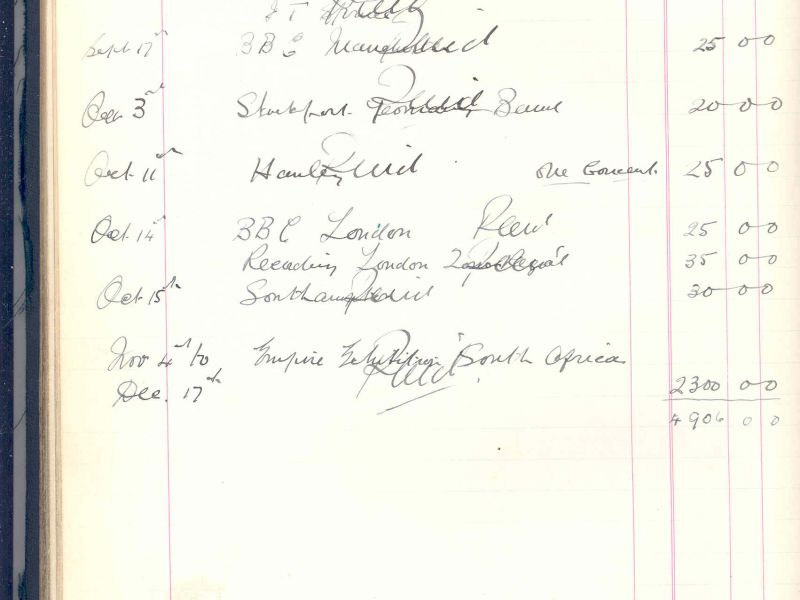 Sept 17th BBC 25 0 0
Oct 3rd Stockport 20 0 0
Oct 11th Hanley Paid one Concert 25 0 0
Oct 14th BBC London Paid 25 0 0
Recording London 35 0 0
Oct 15th 30 0 0
Nov 4th to Empire Exhibition South Africa
Dec. 17th Paid 2300 0 0
4906 0 0